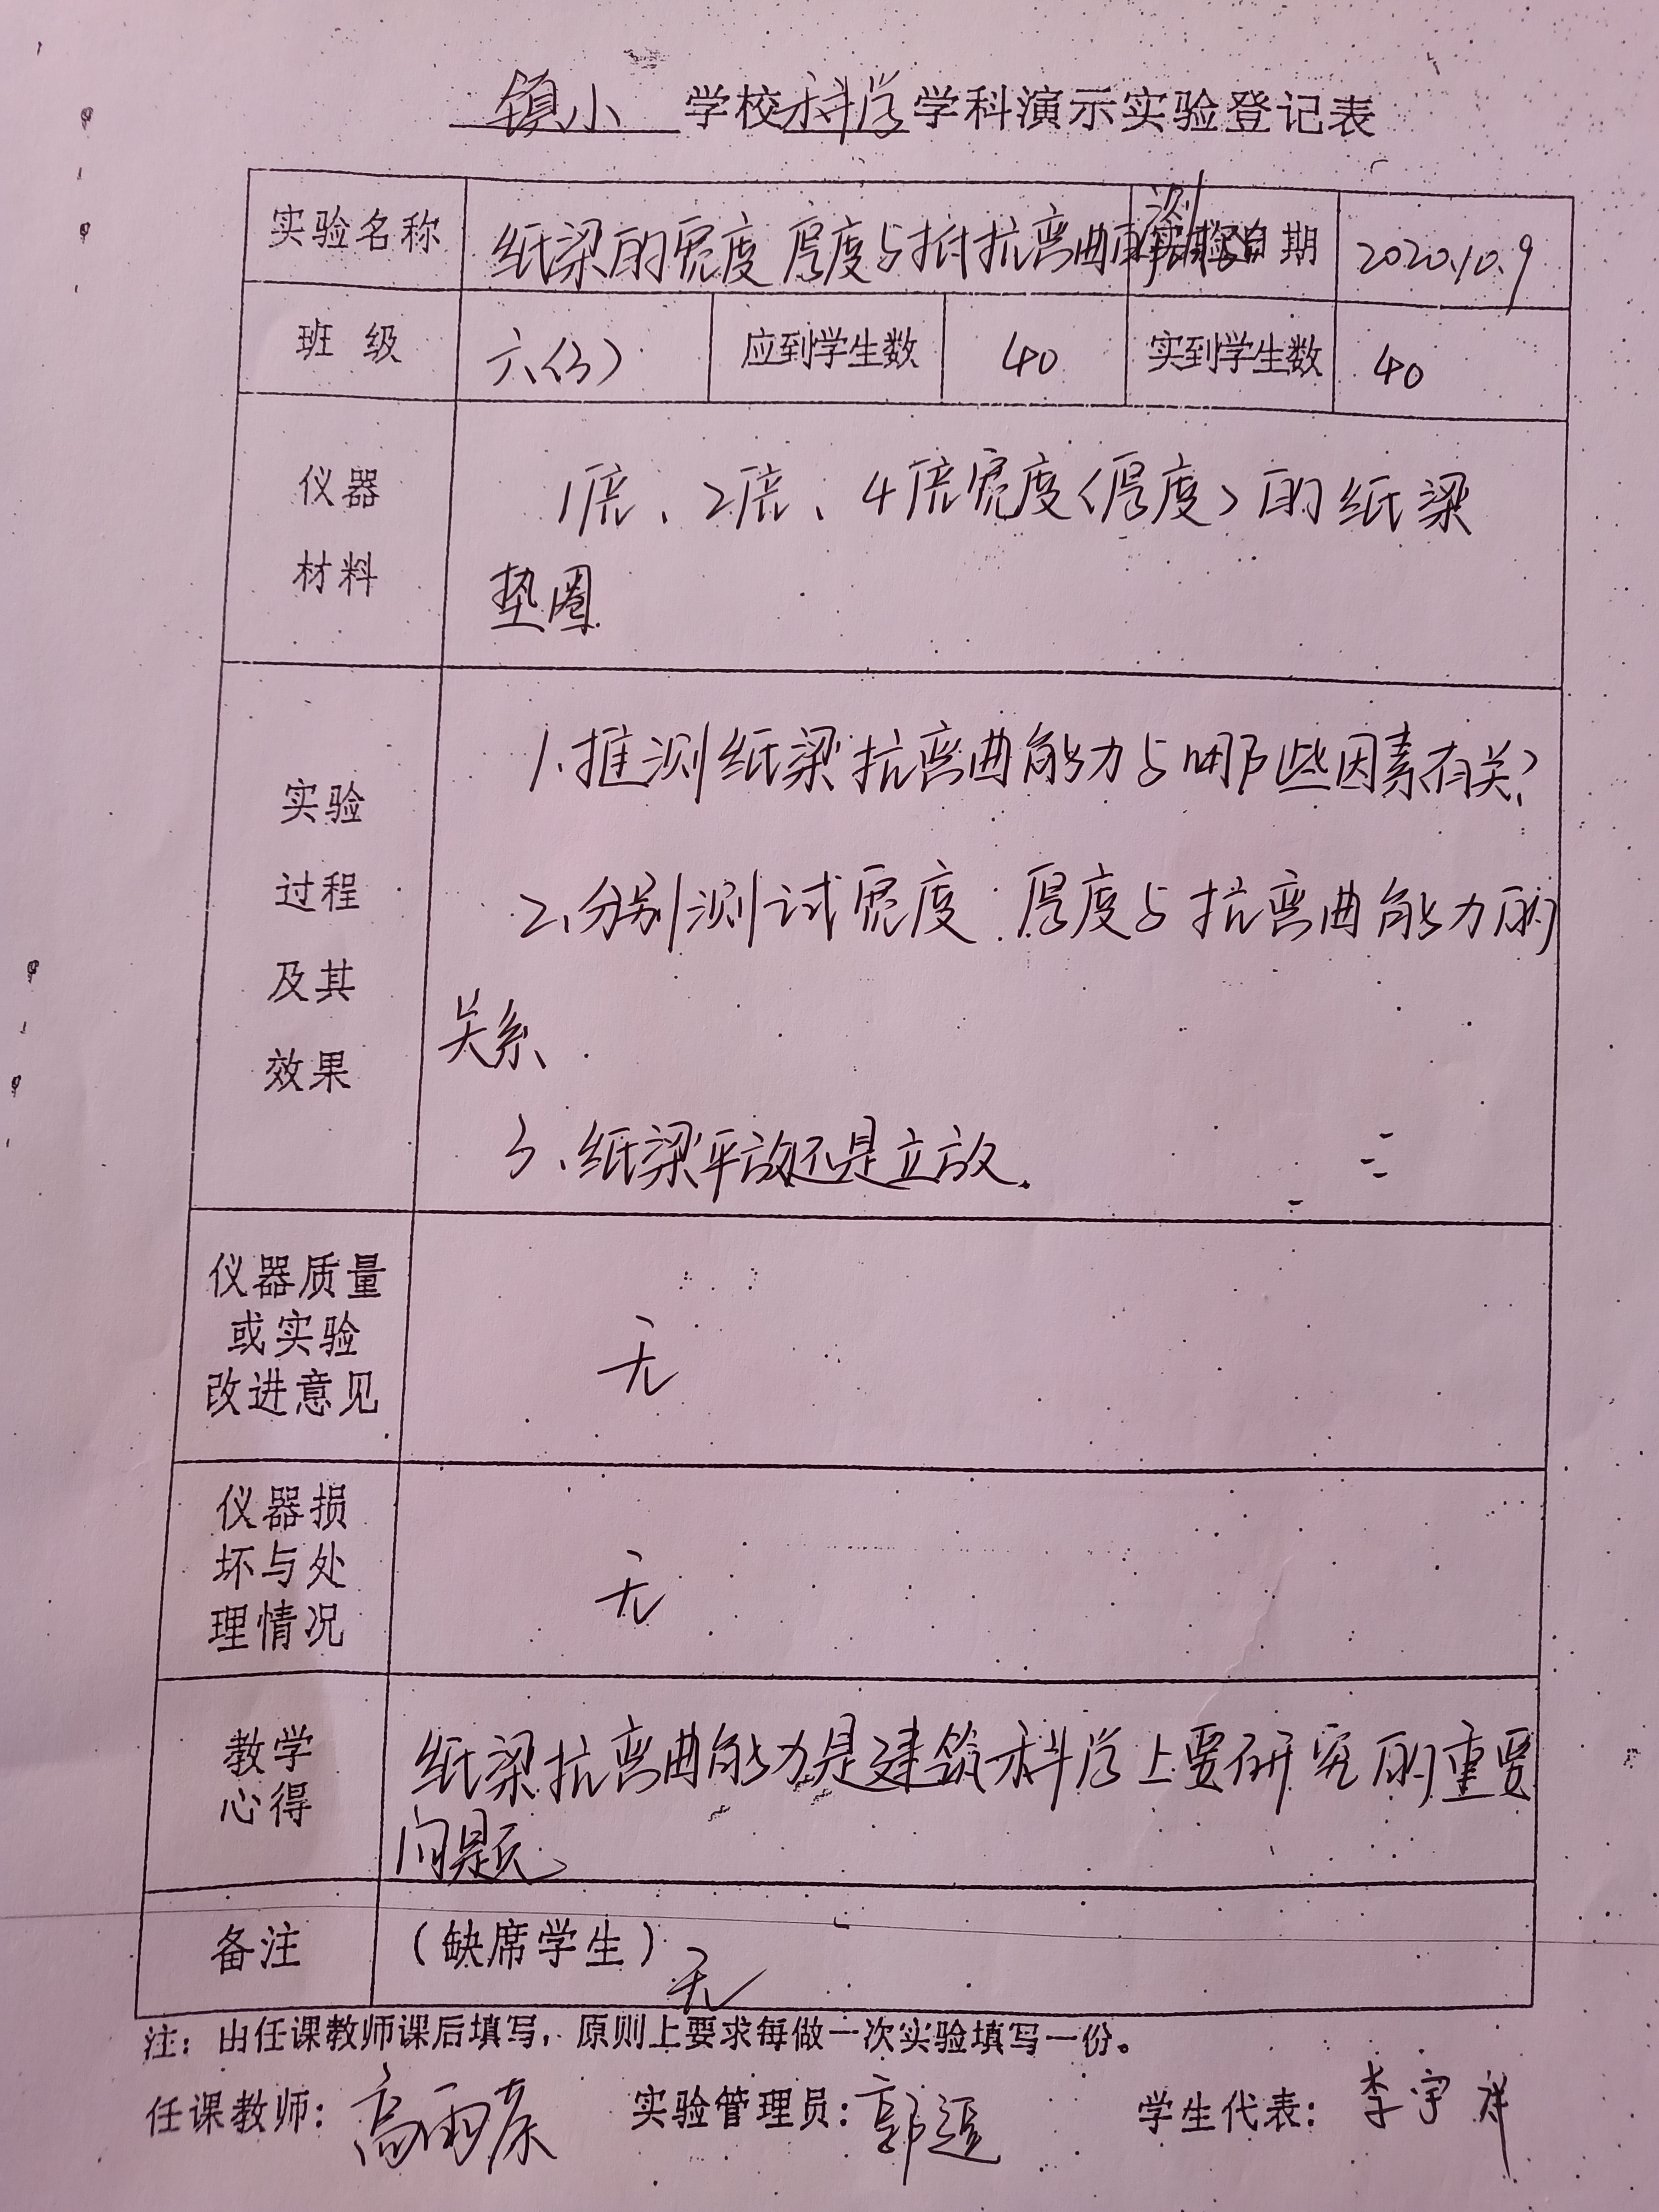 镇小 学校科学学科演示实验登记表
实验名称 纸梁的宽度 厚度与抵抗弯曲 实验日期 2020.10.9
班 级 六(3) 应到学生数 40 实到学生数 40
仪器 1倍、2倍、4倍宽度(厚度)的纸梁
材料 垫圈
实验 1.推测纸梁抗弯曲能力与哪些因素有关?
过程 2、分别测试宽度、厚度与抗弯曲能力的
及其 关系、
效果 3、纸梁平放还是立放.
仪器质量
或实验 无
改进意见
仪器损
坏与处 无
理情况
教学 纸梁抗弯曲能力是建筑科学上要研究的重要
心得 问题、
备注 (缺席学生) 无
注:由任课教师课后填写,原则上要求每做一次实验填写一份。
任课教师:高雨 实验管理员:郭 学生代表:李宇祥